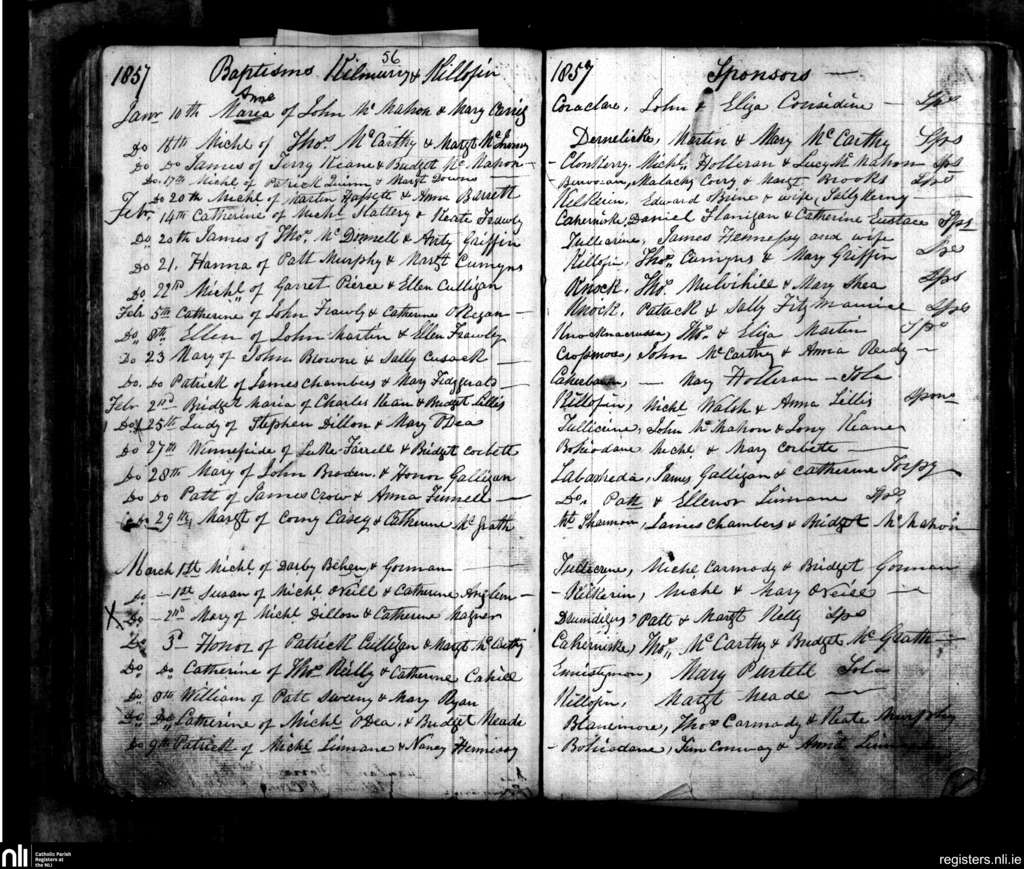 56
1857 Baptisms Kilmurry & Killofin
Anne
Janr 10th Maria of John Mc Mahon & Mary Carrig
Do 18th Michl of Thos. McCarthy & Margt McInerney
Do Do James of Terry Keane & Budget Mc Mahon
Do. 17th Michl of Patrick Quinn & Margt Downs
Do 20th Michl of Martin Hassett & Anna Barrett
Feb. 14th Catherine of Michl Slattery & Keate Frawly
Do 20th James of Thos. Mc Donnell & Anty Griffin
Do 21. Hanna of Patt Murphy & Margt Cumyns
Do 22nd Michl. of Garret Pierce & Ellen Culligan
Febr 5th Catherine of John Frawly & Catherine O Regan
Do 8th Ellen of John Martin & Ellen Frawly
Do 23 Mary of John Browne & Sally Cusack
Do. Do Patrick of James chambers & Mary Fidzgerald
Febr. 2nd Bridget Maria of Charles Kean & Budget Lillis
Do 25th Lady of Stephen Dillon & Mary O'Dea
Do 27th Winnefride of Luke Farrell & Bridget Corbett
Do 28th Mary of John Broden & Honor Galligan
Do Do Patt of James Crow & Anna Finnell
Do 29th Margt of Corny Casey & Catherine Mc Grath
March 1st Michl of Darby Behen & Gorman
Do 1st Susan of Michl O'Neill & Catherine Anglem
X Do 2nd Mary of Michl Dillon & Catherine Magner
Do 3d Honor of Patrick Culligan & Margt McCarthy
Do Do Catherine of Thos. Reilly & Catherine Cahill
Do 8th William of Patt Sweeny & Mary Ryan
Do Do Catherine of Michl O Dea, & Budget Meade
Do 9th Patrick of Michl Linnane & Nancy Hennessy
1857 Sponsors
Coraclare, John & Eliza Considine Sps
Dernelicke, Martin & Mary McCarthy Sps
Clonkerry, Michl. Holleran & Lucy Mc Mahon Sps
Malachy Corry & Margt Brooks Sps
Kilkerin, Edward Brine & wife,
Caherniske, Daniel Flanigan & Catherine Eustace Sps
Tullicrine, James Hennessy and wife
Killofin, Thos. Cumyns & Mary Griffin Sps
Knock, Thos. Mulvihill & Mary Shea Sps
Knock, Patrick & Sally Fitz Maurice Sps
Thos. & Eliza Martin Sps
Crossmore, John McCarthy & Anna Reidy
Mary Holleran Sola
Killofin, Michl Walsh & Anna Lillis Spons
Tullicrine, John Mc Mahon & Jony Keane
Bohiodane Michl & Mary Corbett
Labasheda, James Galligan & Catherine Torpy
Do. Patt & Ellenor Linnane Sps,
Mt Shannon, James chambers & Bridget McMahon
Tullicrine, Michl Carmody & Bridget Gorman
Kilkerin, Michl & Mary O'Neill
Patt & Margt Kelly Sps
Caherniske, Thos. McCarthy & Bridget McGrath
Ennistymon, Mary Purtell Sola
Killofin, Margt Meade
Blanemore, Thos Carmody & Keate Murphy
Bohiodane, Tim Conway & Anna Linnane
nli
Catholic Parish
Registers at
the NLI
registers.nli.ie